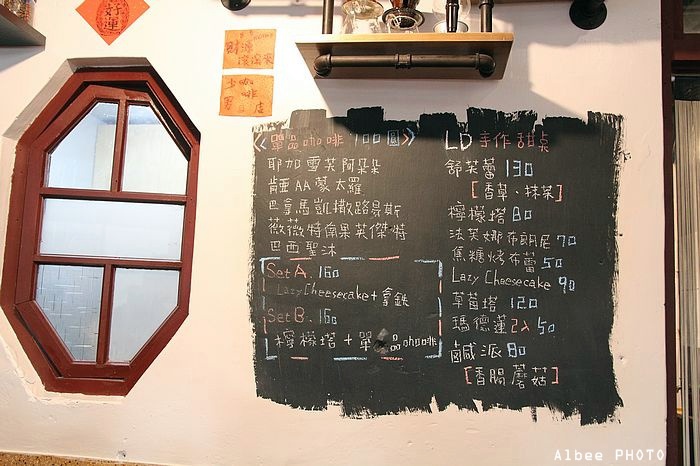 好運
財源
滾滾來
《單品咖啡 100圓》
耶加雪芙阿朵朵
肯亞AA蒙太羅
巴拿馬凱撒路易斯
薇薇特南果英傑特
巴西聖沐
Set A. 160
Lazy Cheesecake + 拿鐵
Set B. 160
檸檬塔 + 單品咖啡
LD 手作甜点
舒芙蕾 130
[香草、抹茶]
檸檬塔 80
法芙娜布朗尼 70
焦糖烤布蕾 50
Lazy Cheesecake 90
草莓塔 120
瑪德蓮 2入 50
鹹派 80
[香腸蘑菇]
Albee PHOTO